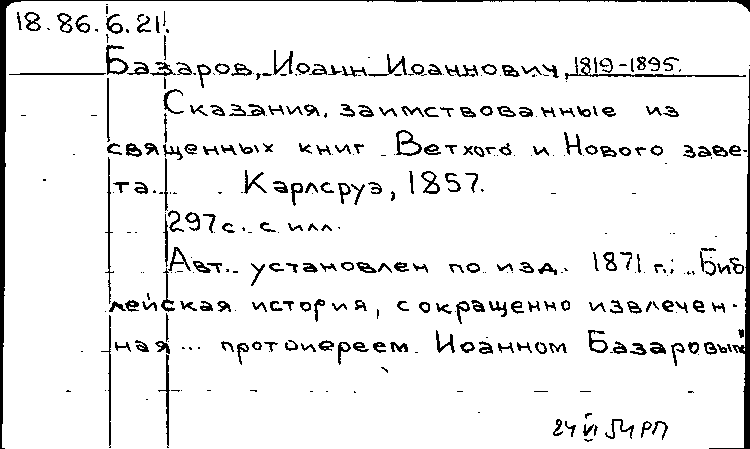 18.86.6.21.
Базаров, Иоанн Иоаннович, 1819-1895.
Сказания, заимствованные из
священных книг Ветхого и Нового заве-
та. Карлсруэ, 1857.
297с. с илл.
Авт. установлен по изд. 1871 г.: „Биб
лейская история, сокращенно извлечен-
ная... протоиереем Иоанном Базаровым"
24